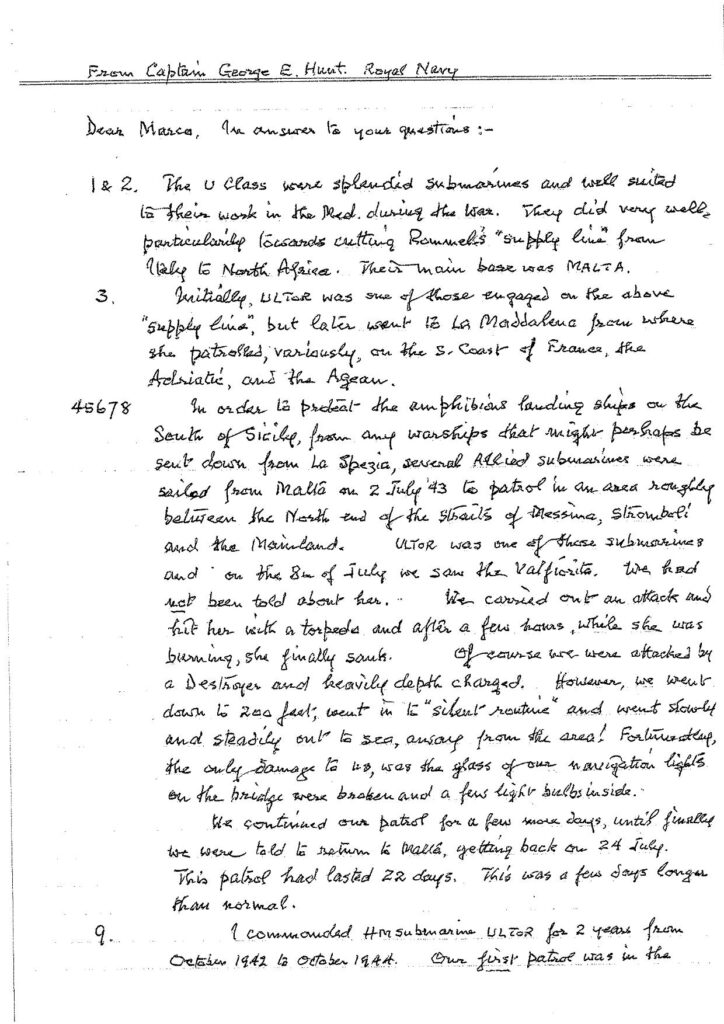 From Captain George E. Hunt. Royal Navy
Dear Marco, In answer to your questions :-
1 & 2. The U Class were splendid submarines and well suited
to their work in the Med. during the War. They did very well,
particularily towards cutting Rommel's "supply line" from
Italy to North Africa. Their main base was MALTA.
3. Initially, ULTOR was one of those engaged on the above
"supply line", but later went to La Maddalena from where
she patrolled, variously, on the S. Coast of France, the
Adriatic, and the Agean.
45678 In order to protect the amphibious landing ships on the
South of Sicily, from any warships that might perhaps be
sent down from La Spezia, several Allied submarines were
sailed from Malta on 2 July '43 to patrol in an area roughly
between the North end of the Straits of Messina, Stromboli
and the Mainland. ULTOR was one of those submarines
and on the 8th of July we saw the Valfiorita. We had
not been told about her. We carried out an attack and
hit her with a torpedo and after a few hours, while she was
burning, she finally sank. Of course we were attacked by
a Destroyer and heavily depth charged. However, we went
down to 200 feet, went in to "silent routine" and went slowly
and steadily out to sea, away from the area! Fortunately,
the only damage to us, was the glass of our navigation lights
on the bridge were broken and a few light bulbs inside.
We continued our patrol for a few more days, until finally
we were told to return to Malta, getting back on 24 July.
This patrol had lasted 22 days. This was a few days longer
than normal.
9. I commanded HM submarine ULTOR for 2 years from
October 1942 to October 1944. Our first patrol was in the